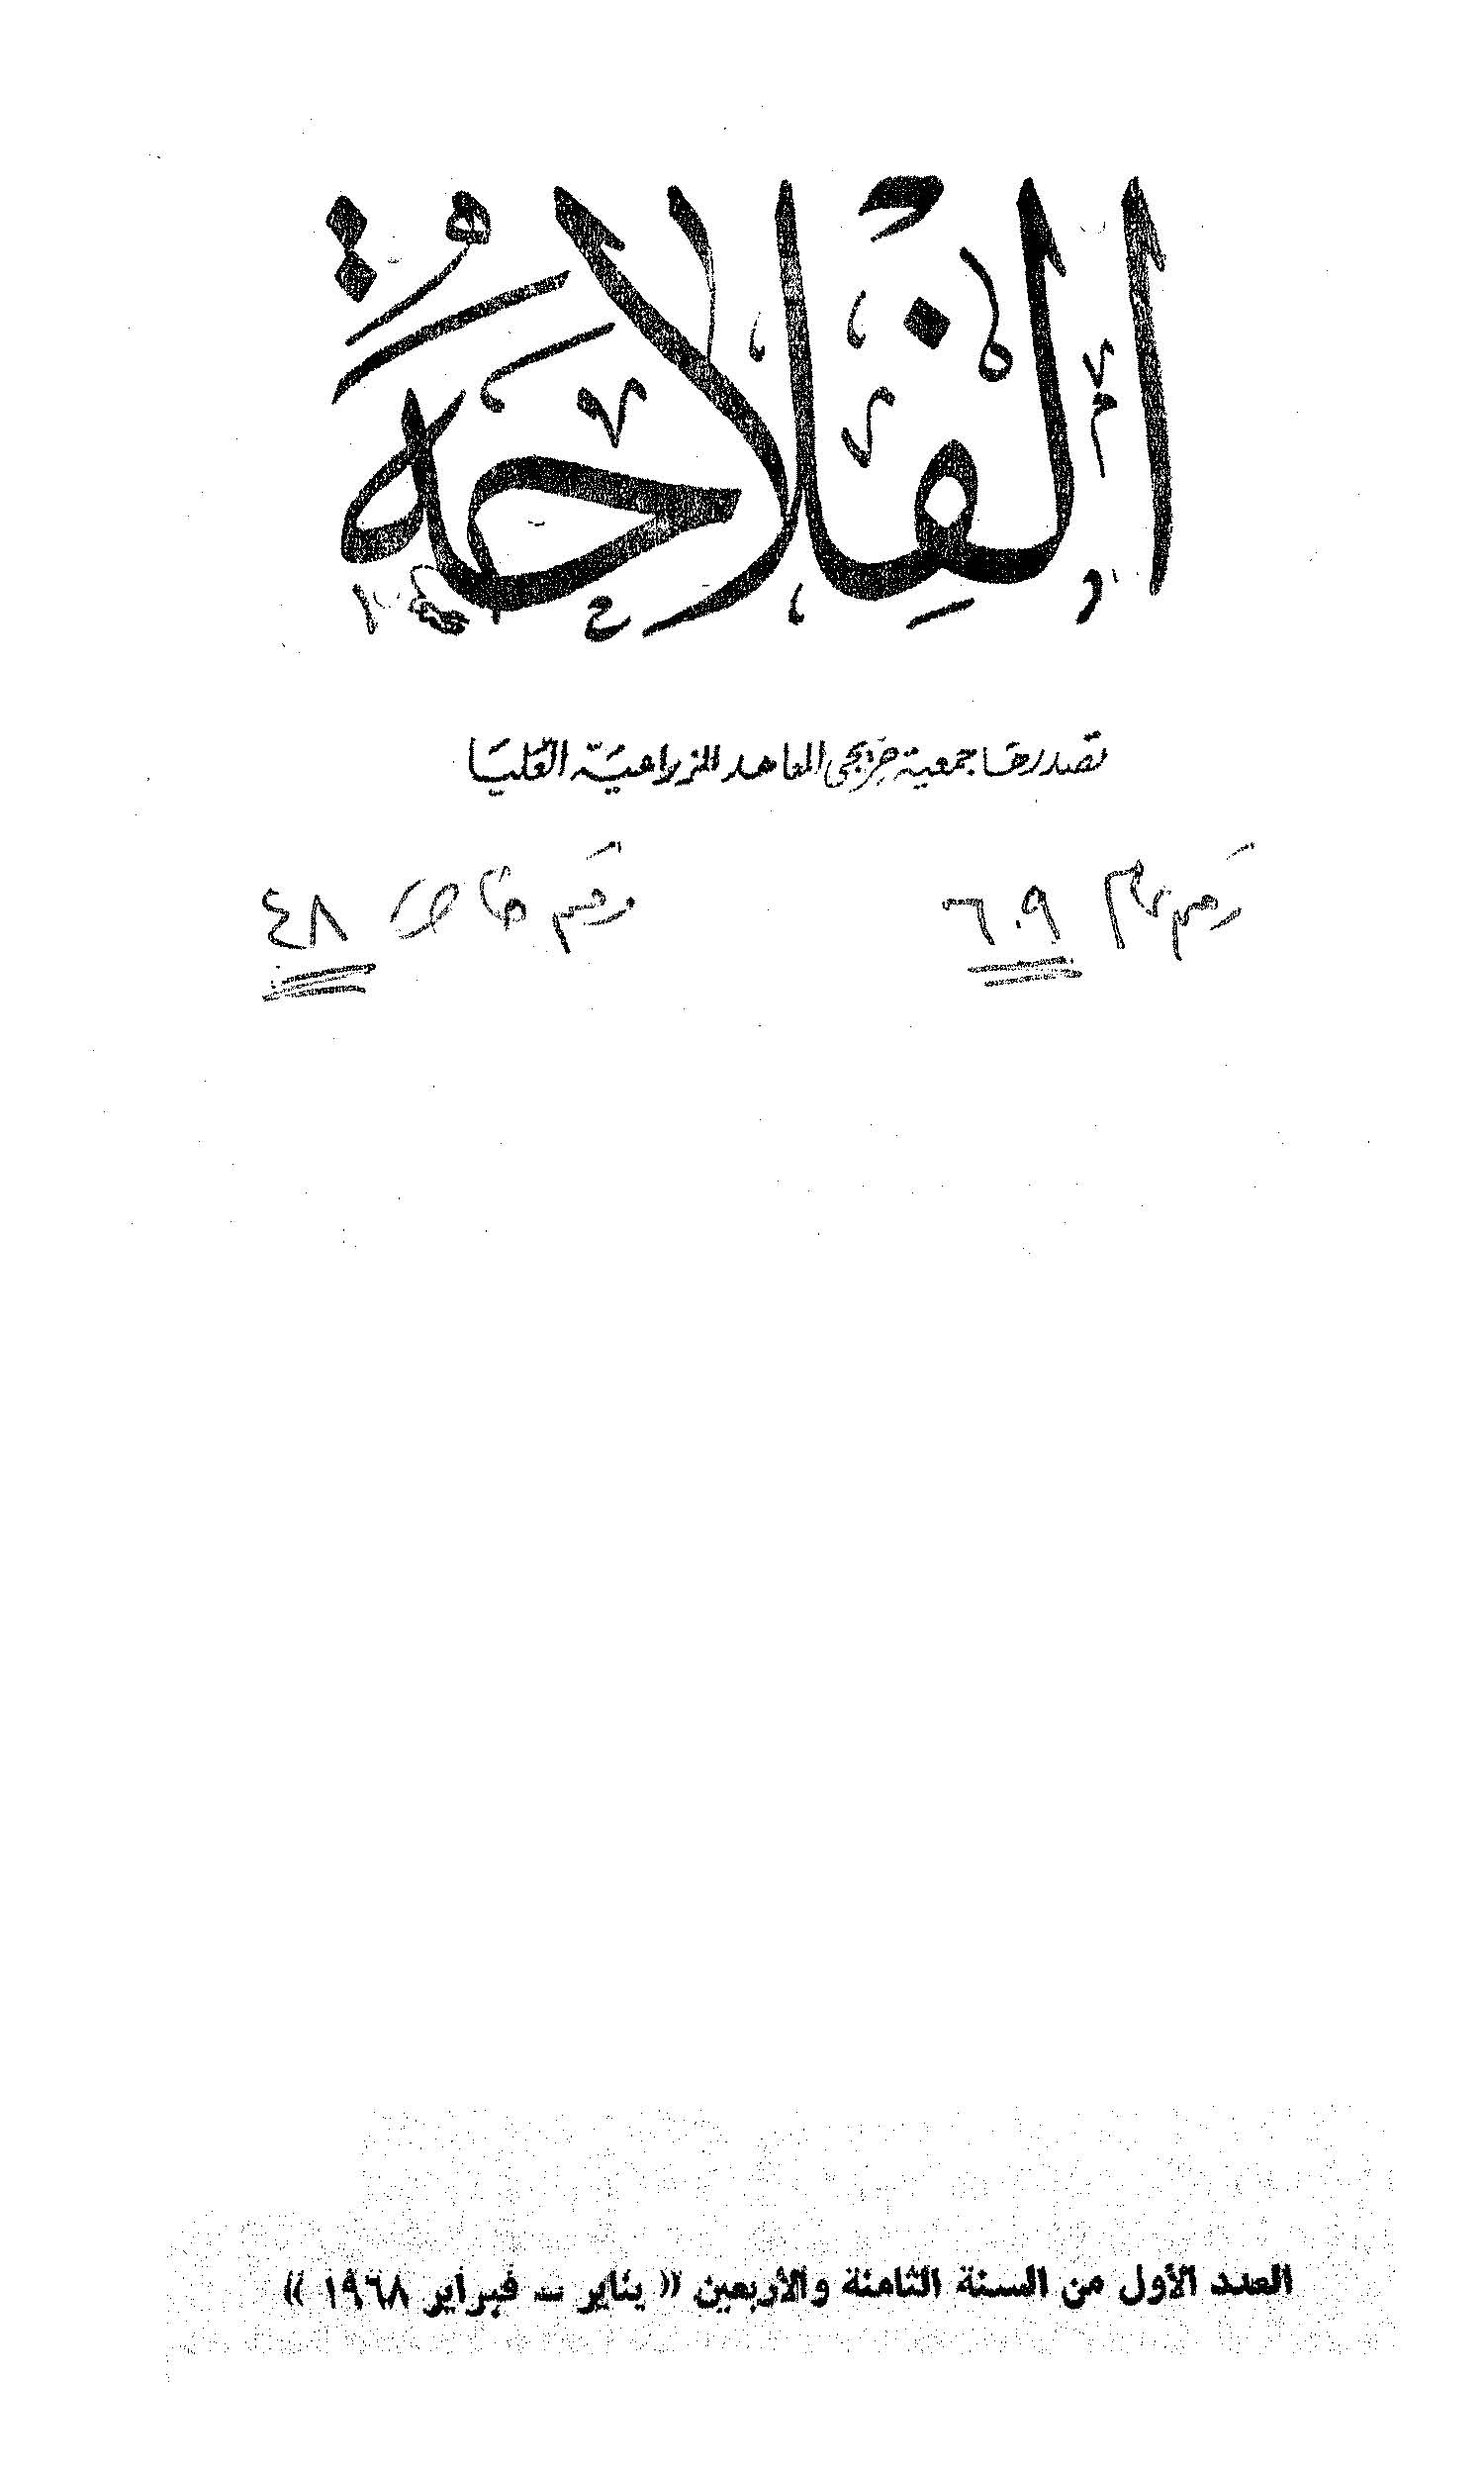 الفلاحة
تصدرها جمعية خريجى المعاهد الزراعية العليا
رقم عام ٦٠٩ رقم خاص ٤٨
العدد الأول من السنة الثامنة والأربعين « يناير ــ فبراير ١٩٦٨ »